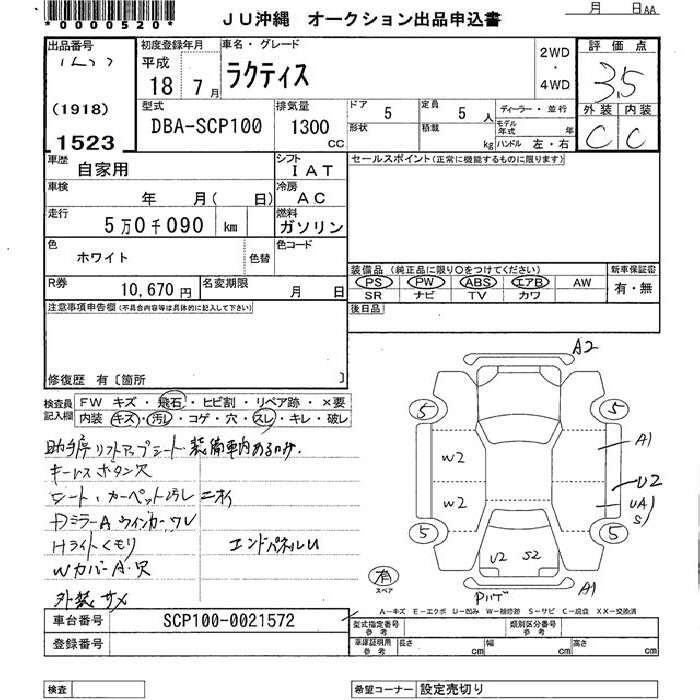 *0000520*
月 日AA
JU沖縄 オークション出品申込書
出品番号 初度登録年月 車名・グレード 2WD ・ 4WD 評価点
平成 18 7月 ラクティス 3.5
(1918)
1523
型式 排気量 ドア 5 定員 5 人 ディーラー・並行 外装 内装
DBA-SCP100 1300 CC 形状 積載 kg モデル年式 年 ハンドル 左・右 C C
車歴 自家用 シフト IAT セールスポイント(正常に機能するものに限ります)
車検 年 月( 日) 冷房 AC
走行 5万0千090 km 燃料 ガソリン
色 ホワイト 色替 色コード
装備品 (純正品に限り○をつけてください) 新車保証書
R券 10,670円 名変期限 月 日 PS PW ABS エアB AW 有・無
SR ナビ TV カワ
注意事項申告欄(不具合内容等は具体的に記入して下さい) 後日品
修復歴 有〔箇所 〕
検査員記入欄 FW キズ・飛石・ヒビ割・リペア跡・×要
内装 キズ・汚レ・コゲ・穴・スレ・キレ・破レ
助手席リフトアップシート 装備車内あるのみ.
キーレスボタン穴
シート、カーペット汚レ ニオイ
DミラーA ウィンカーワレ
Hライトくモリ エンドパネルU
WカバーA・穴
外装 サメ
A2
5 5
W2 A1
U2
W2 UA1
S
5 5
U2 S2
有
スペア
A1
A-キズ E-エクボ U-凹み W-補修跡 S-サビ C-腐食 X X-交換済
車台番号 SCP100-0021572 型式指定番号 参考 類別区分番号 参考
登録番号 車庫証明用 参考 長さ cm 幅 cm 高さ cm
検査 希望コーナー 設定売切り